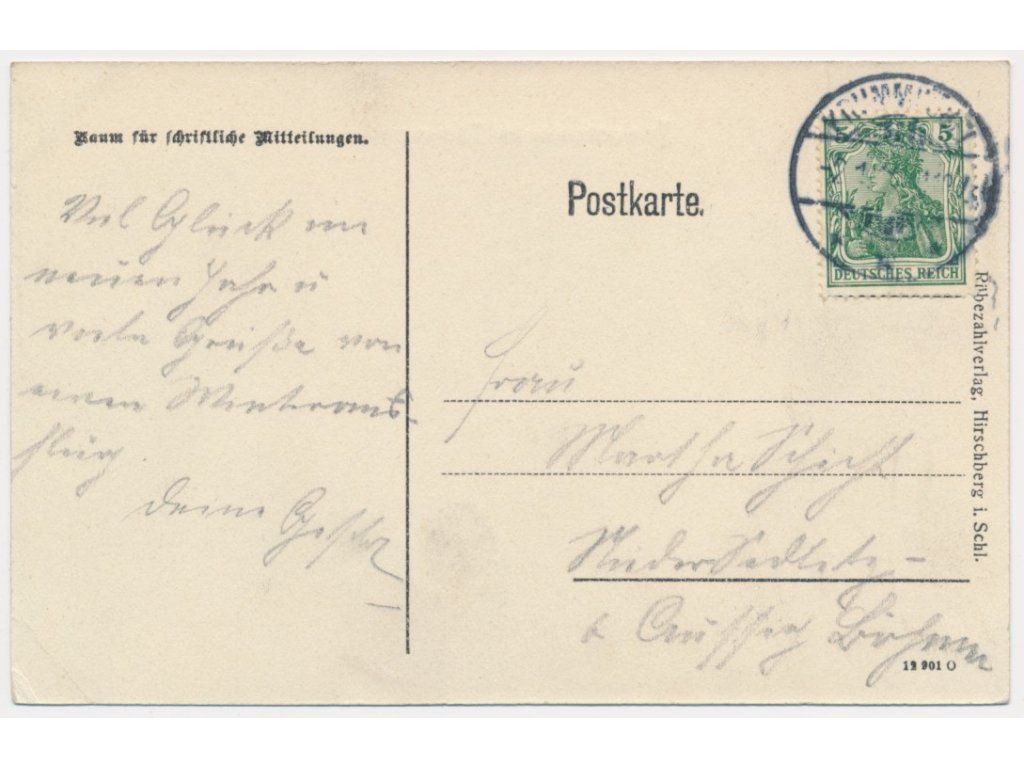 Raum für schriftliche Mitteilungen.
Viel Glück im
neuen Jahr u
viele Grüße von
einem Winteraus-
flug
Deine
Postkarte.
5 5
DEUTSCHES REICH
Frau
Martha Schicht
Nieder Sedlitz -
b Aussig Böhmen
Rübezahlverlag, Hirschberg i. Schl.
12 901 O